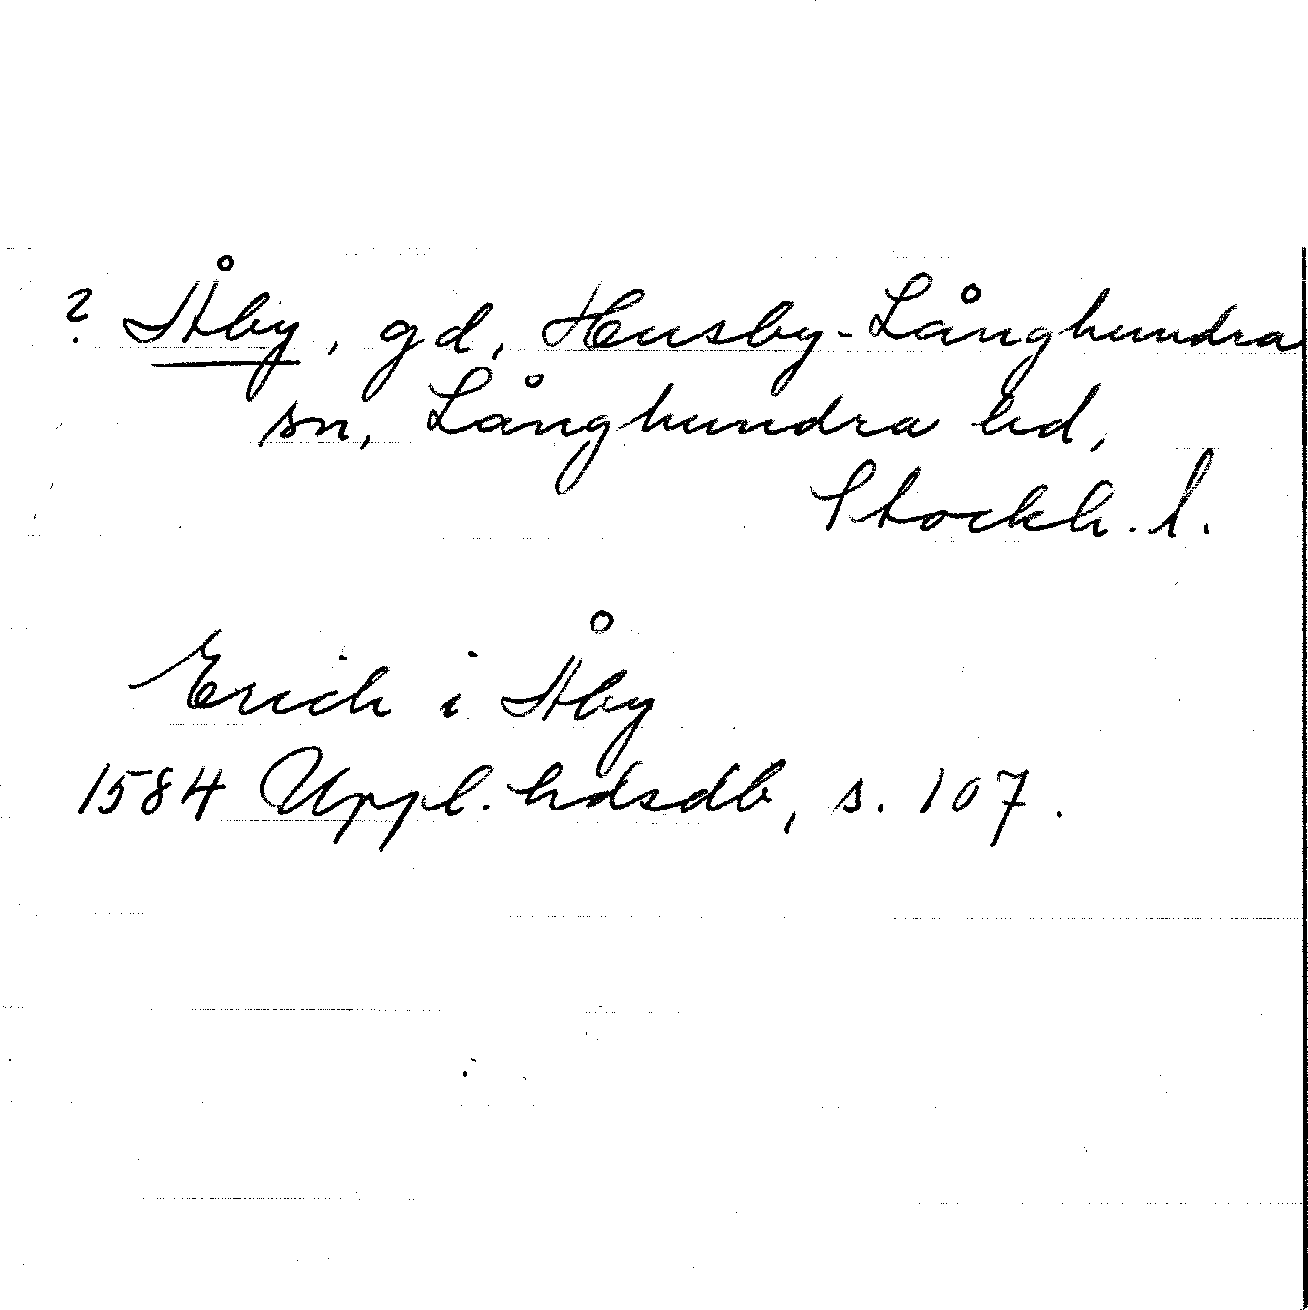 ? Åby, gd, Husby-Långhundra
sn, Långhundra hd,
Stockh. l.
Erich i Åby
1584 Uppl. hdsdb, s. 107.